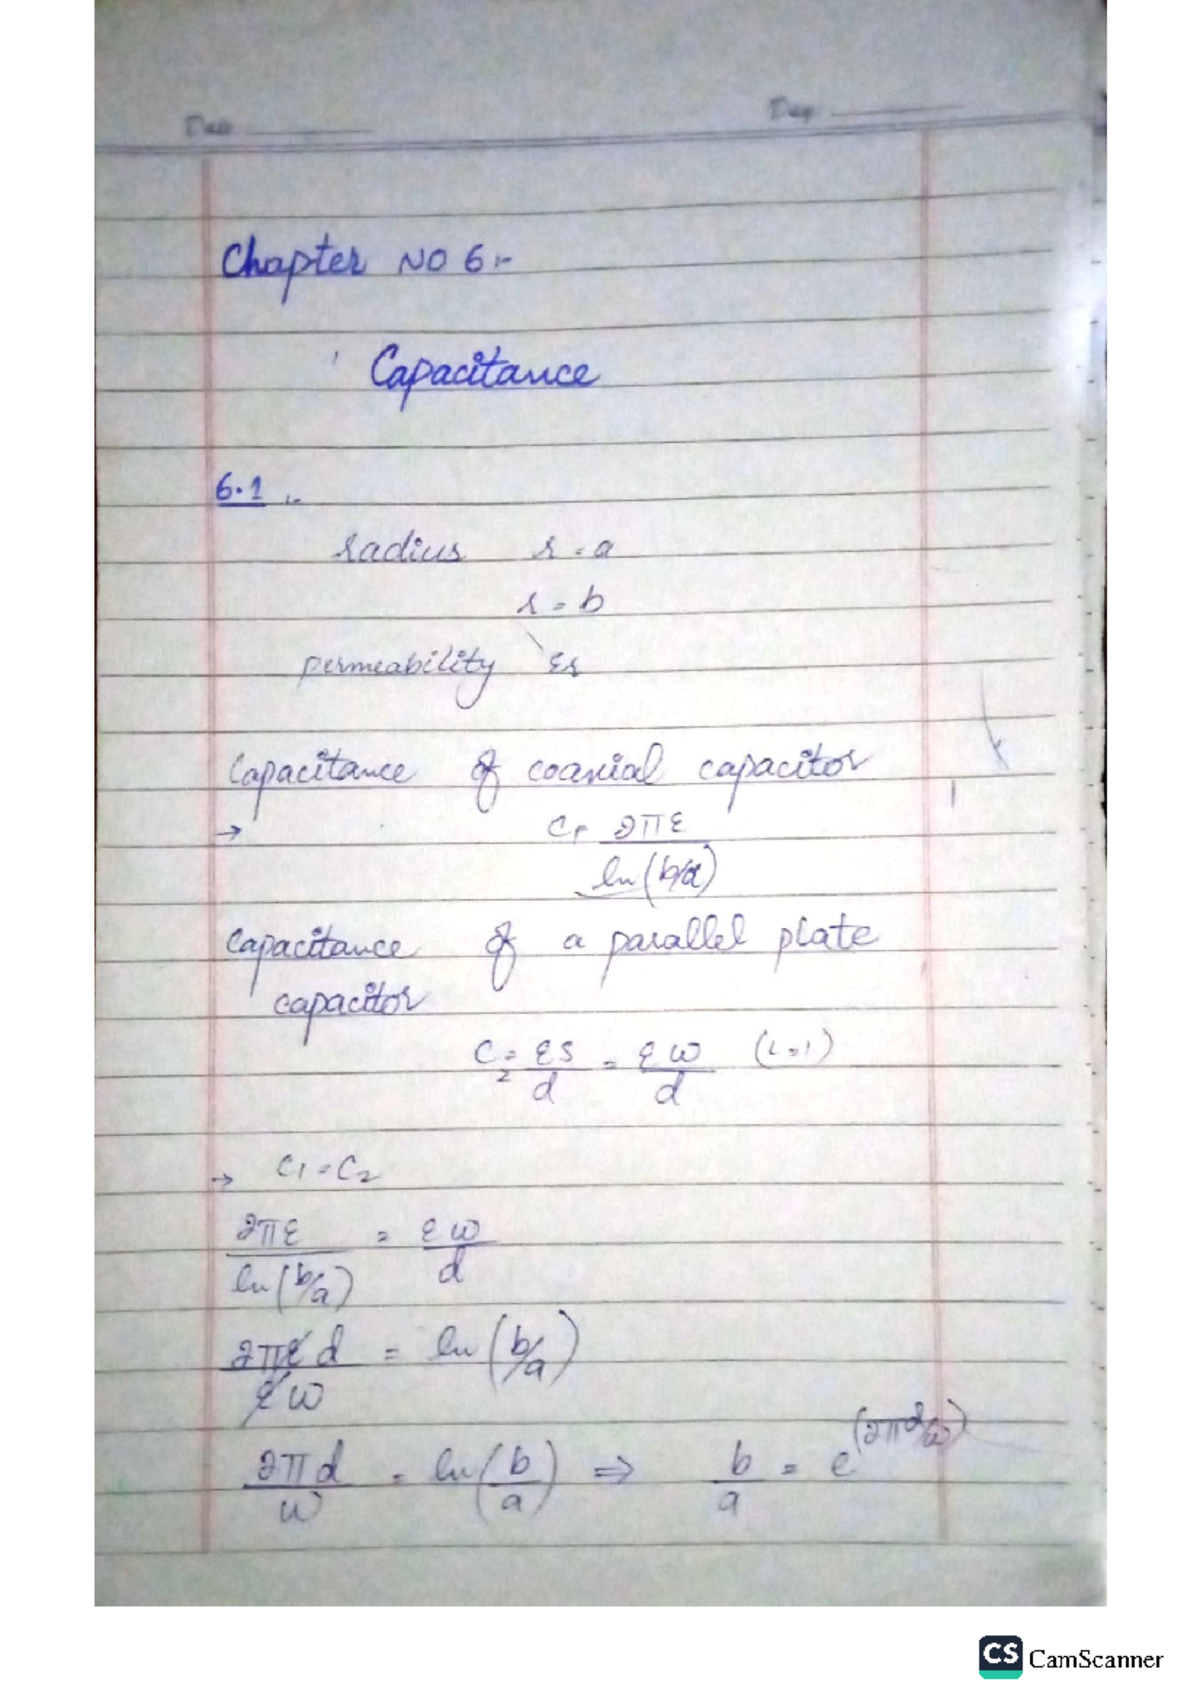 Date
Day
Chapter NO 6:-
Capacitance
6.1 :-
radius r = a
r = b
permeability εr
Capacitance of coaxial capacitor
→ C1 = 2πε / ln(b/a)
Capacitance of a parallel plate
capacitor
C2 = εS/d = εw/d (L=1)
→ C1 = C2
2πε / ln(b/a) = εw/d
2πεd / εw = ln(b/a)
2πd/w = ln(b/a) ⇒ b/a = e^(2πd/w)
CS CamScanner